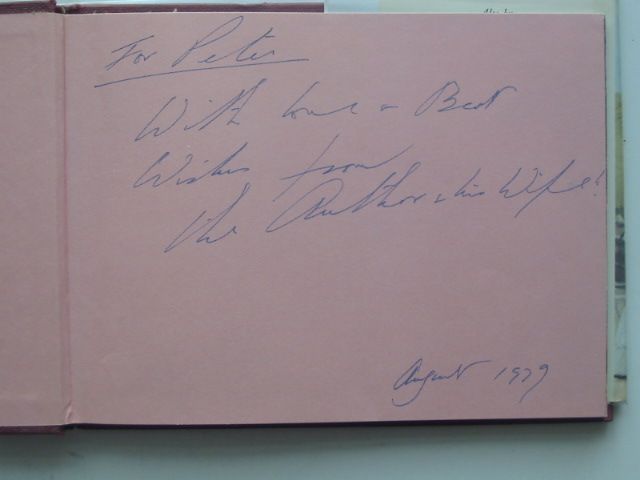 For Peter
With love & Best
Wishes from
the Author & his Wife!
August 1979